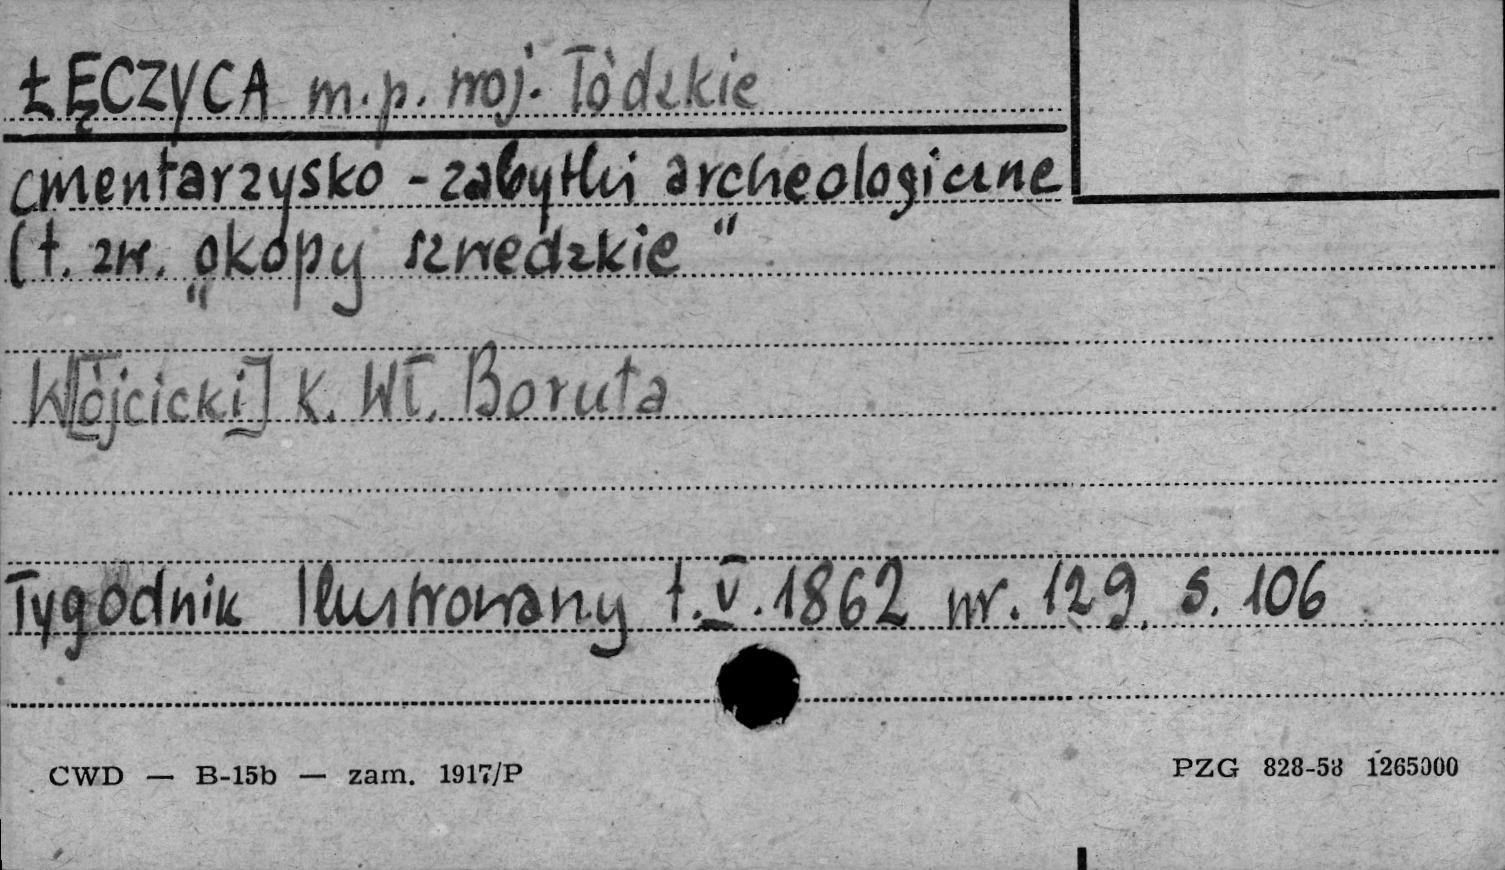 ŁĘCZYCA m.p. woj. Łódzkie
cmentarzysko - zabytki archeologiczne
(t. zw. „okopy szwedzkie“
W[ójcicki] K. Wł. Boruta
Tygodnik Ilustrowany t. V. 1862 nr. 129. s. 106
CWD — B-15b — zam. 1917/P
PZG 828-58 1265000